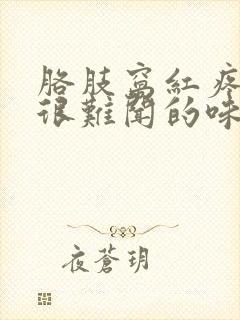 胳肢窩紅疼
很難聞的味
夜蒼玥